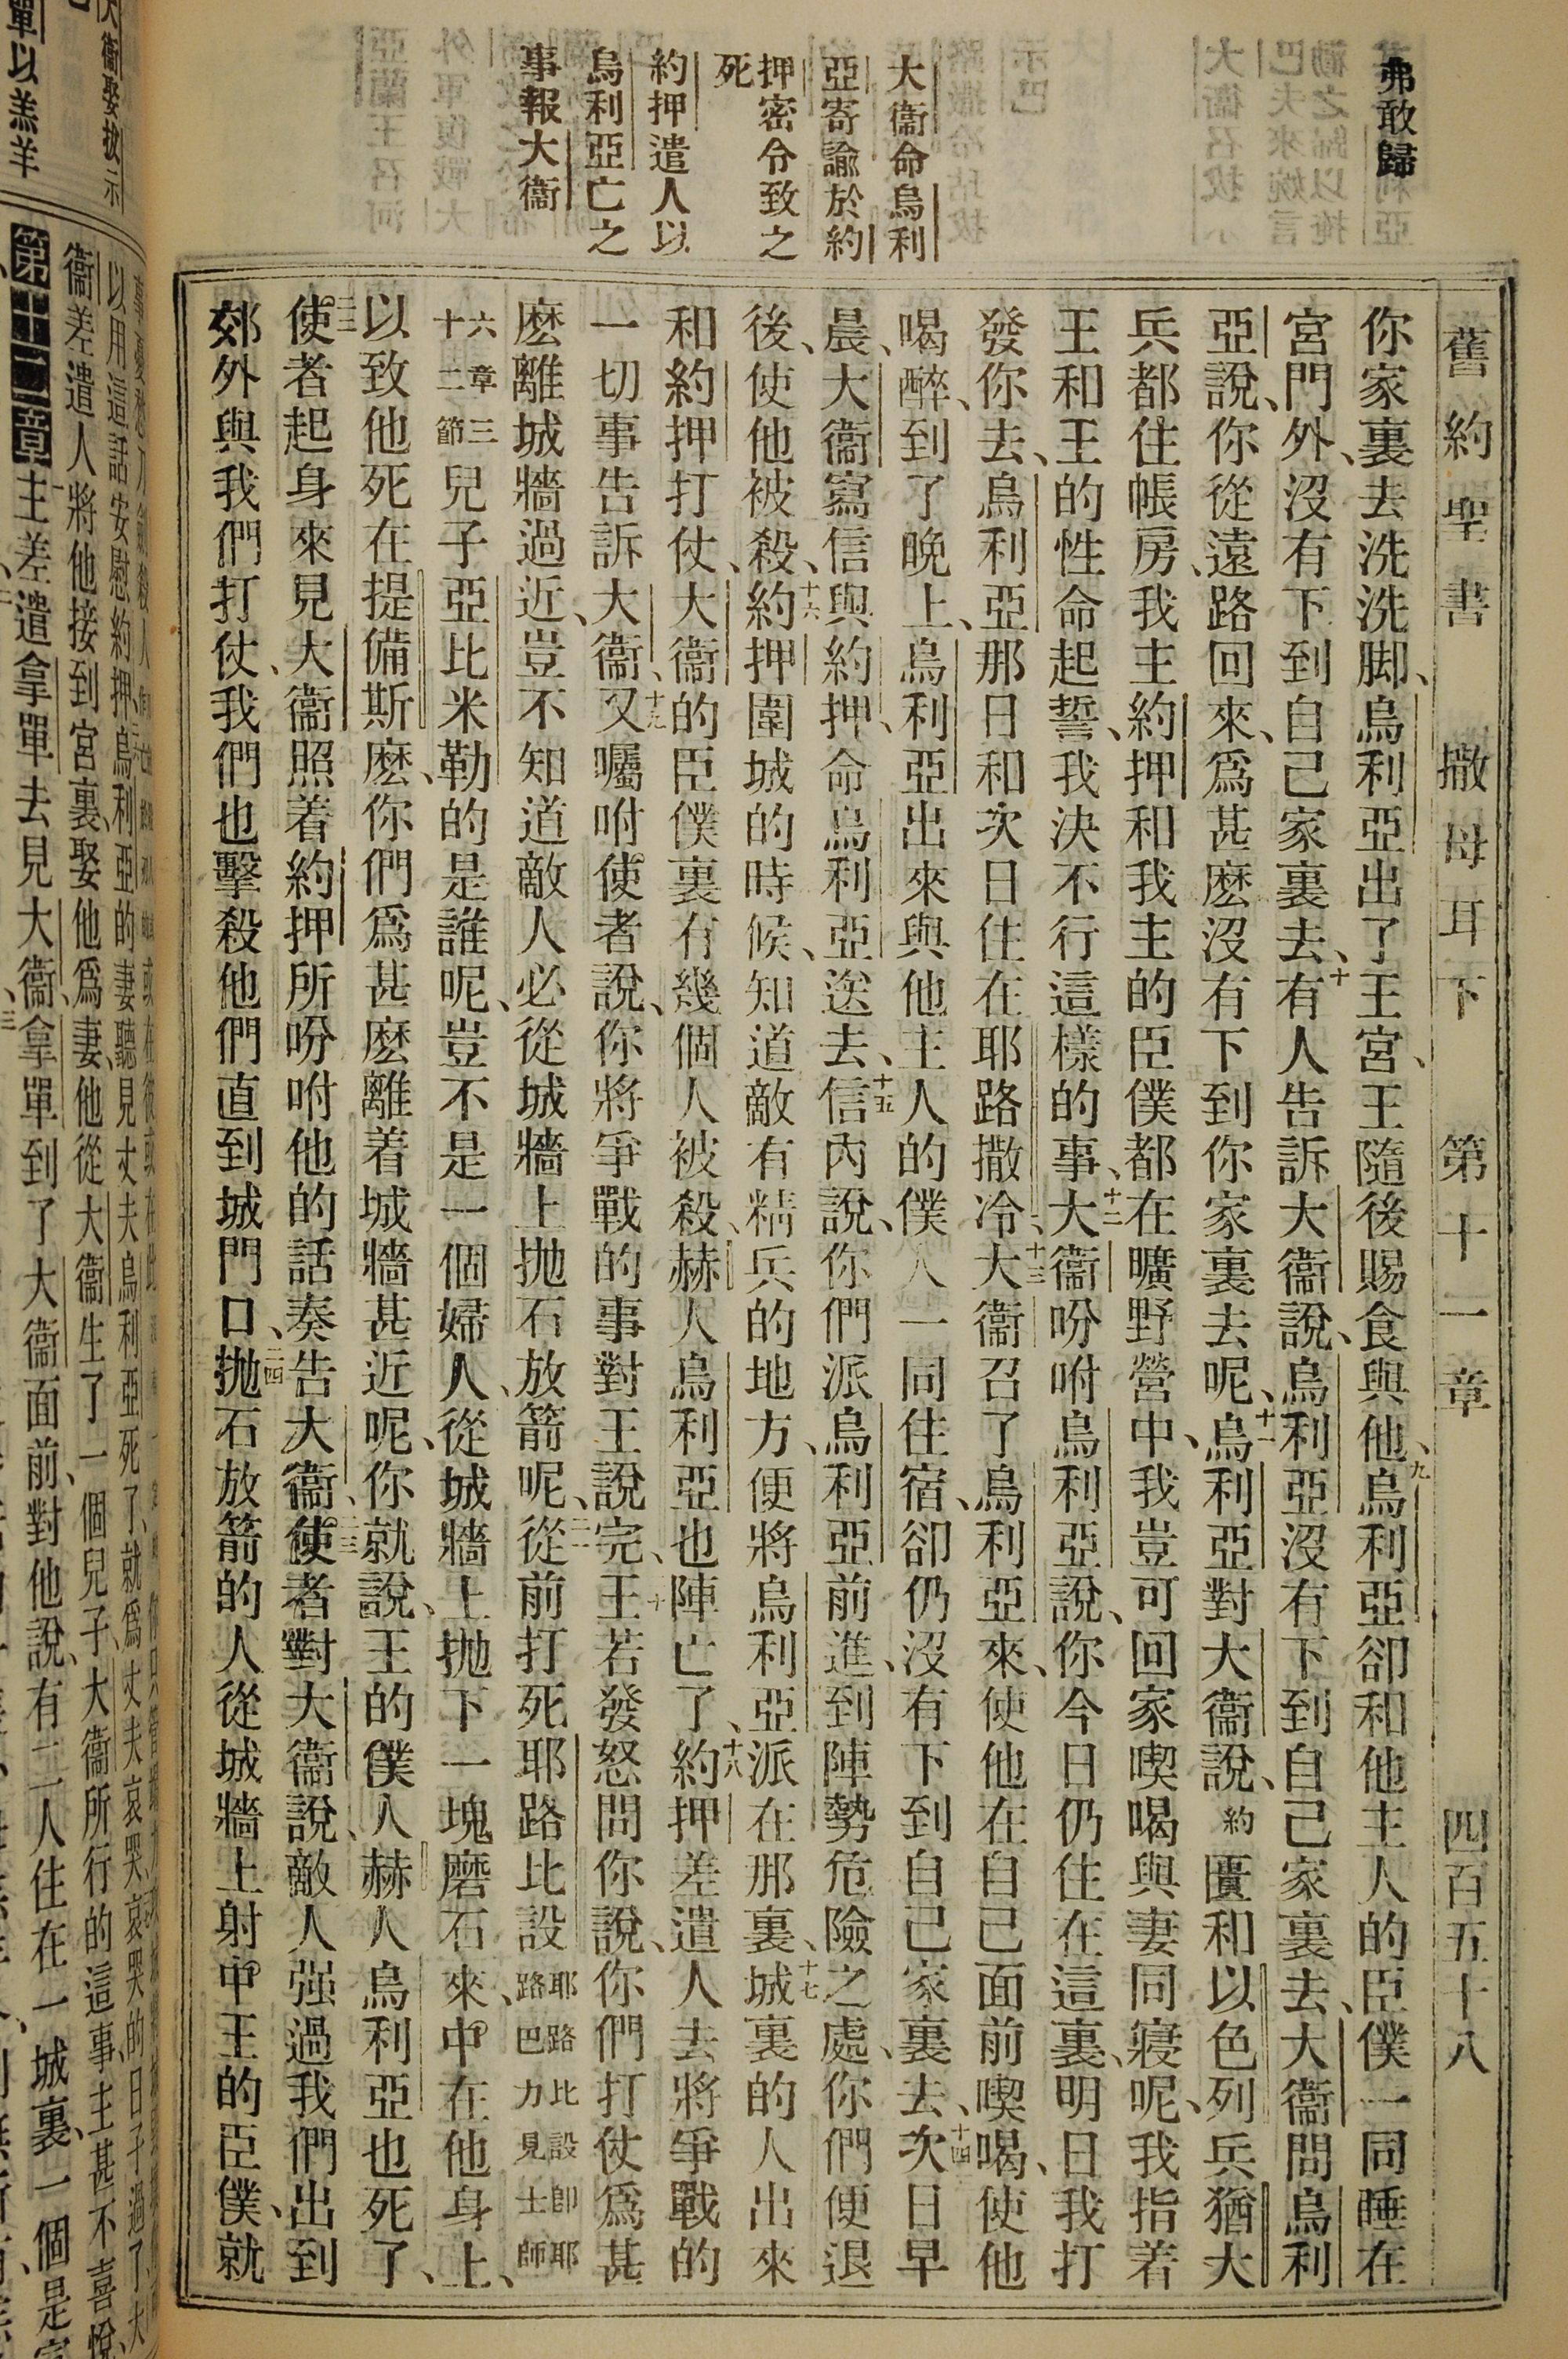 弗敢歸
大衞命烏利
亞寄諭於約
押密令致之
死
約押遣人以
烏利亞亡之
事報大衞
舊約聖書 撒母耳下 第十一章 四百五十八
你家裏去洗洗脚、烏利亞出了王宮、王隨後賜食與他、九烏利亞卻和他主人的臣僕一同睡在
宮門外、沒有下到自己家裏去、十有人告訴大衞說、烏利亞沒有下到自己家裏去、大衞問烏利
亞說、你從遠路回來、爲甚麼沒有下到你家裏去呢、十一烏利亞對大衞說、約匱和以色列兵猶大
兵都住帳房、我主約押和我主的臣僕都在曠野營中、我豈可回家喫喝與妻同寢呢、我指着
王和王的性命起誓、我決不行這樣的事、十二大衞吩咐烏利亞說、你今日仍住在這裏、明日我打
發你去、烏利亞那日和次日住在耶路撒冷、十三大衞召了烏利亞來、使他在自己面前喫喝、使他
喝醉、到了晚上、烏利亞出來與他主人的僕人一同住宿、卻仍沒有下到自己家裏去、十四次日早
晨、大衞寫信與約押、命烏利亞送去、十五信內說、你們派烏利亞前進、到陣勢危險之處、你們便退
後、使他被殺、十六約押圍城的時候、知道敵有精兵的地方、便將烏利亞派在那裏、十七城裏的人出來
和約押打仗、大衞的臣僕裏有幾個人被殺、赫人烏利亞也陣亡了、十八約押差遣人去將爭戰的
一切事告訴大衞、十九又囑咐使者說、你將爭戰的事對王說完、二十王若發怒問你說、你們打仗爲甚
麼離城牆過近、豈不知道敵人必從城牆上抛石放箭呢、二一從前打死耶路比設耶路比設卽耶路巴力見士師
六章三十二節兒子亞比米勒的是誰呢、豈不是一個婦人、從城牆上抛下一塊磨石來、中在他身上、
以致他死在提備斯麼、你們爲甚麼離着城牆甚近呢、你就說、王的僕人赫人烏利亞也死了、
二二使者起身來見大衞、照着約押所吩咐他的話奏告大衞、二三使者對大衞說、敵人强過我們、出到
郊外與我們打仗、我們也擊殺他們直到城門口、二四抛石放箭的人從城牆上射中王的臣僕、就
大衞娶拔示
單以羔羊
以用這話安慰約押、烏利亞的妻聽見丈夫烏利亞死了、就爲丈夫哀哭、哀哭的日子過了、大
衞差遣人將他接到宮裏、娶他爲妻、他從大衞生了一個兒子、大衞所行的這事、主甚不喜悅
第十二章主差遣拿單去見大衞、拿單到了大衞面前、對他說、有二人住在一城裏、一個是